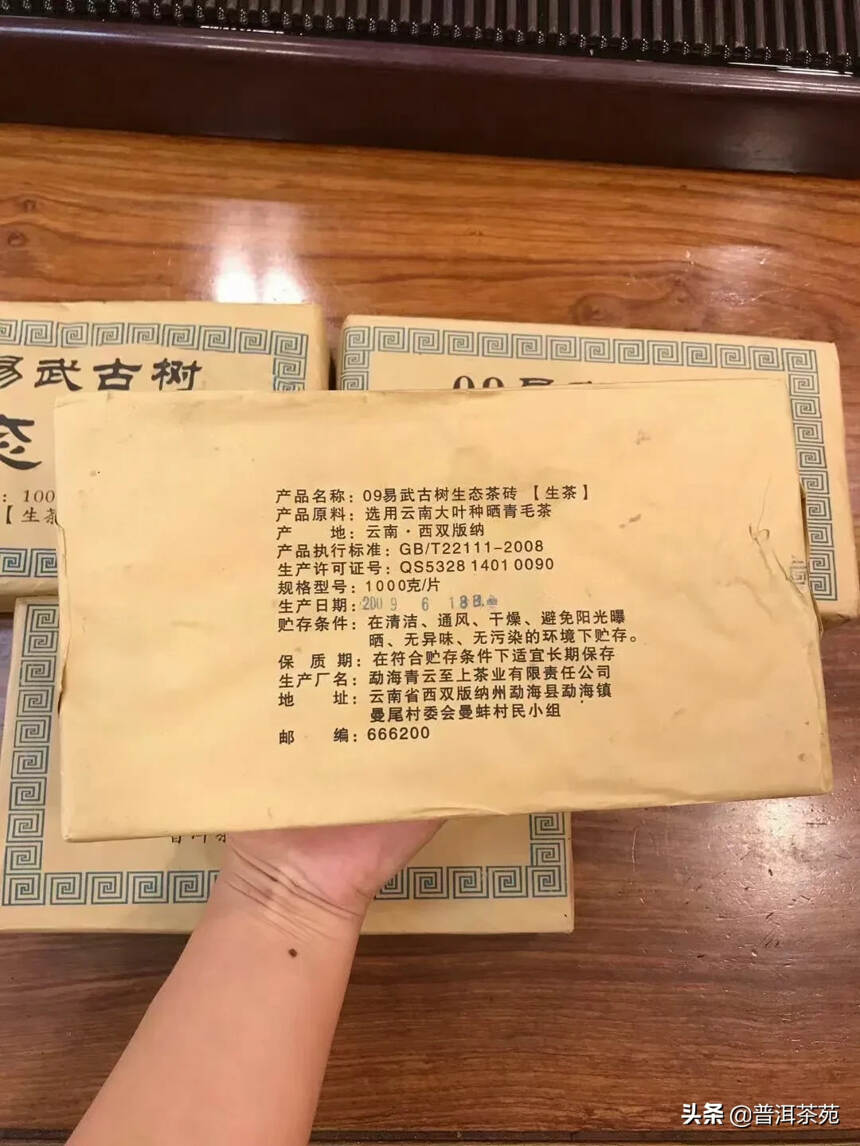 易武古树
态
09易
: 100
【生茶
产品名称：09易武古树生态茶砖【生茶】
产品原料：选用云南大叶种晒青毛茶
产　　地：云南·西双版纳
产品执行标准：GB/T22111-2008
生产许可证号：QS5328 1401 0090
规格型号：1000克/片
生产日期：2009 6 18日
贮存条件：在清洁、通风、干燥、避免阳光曝
晒、无异味、无污染的环境下贮存。
保 质 期：在符合贮存条件下适宜长期保存
生产厂名：勐海青云至上茶业有限责任公司
地　　址：云南省西双版纳州勐海县勐海镇
曼尾村委会曼蚌村民小组
邮　　编：666200
头条 @普洱茶苑